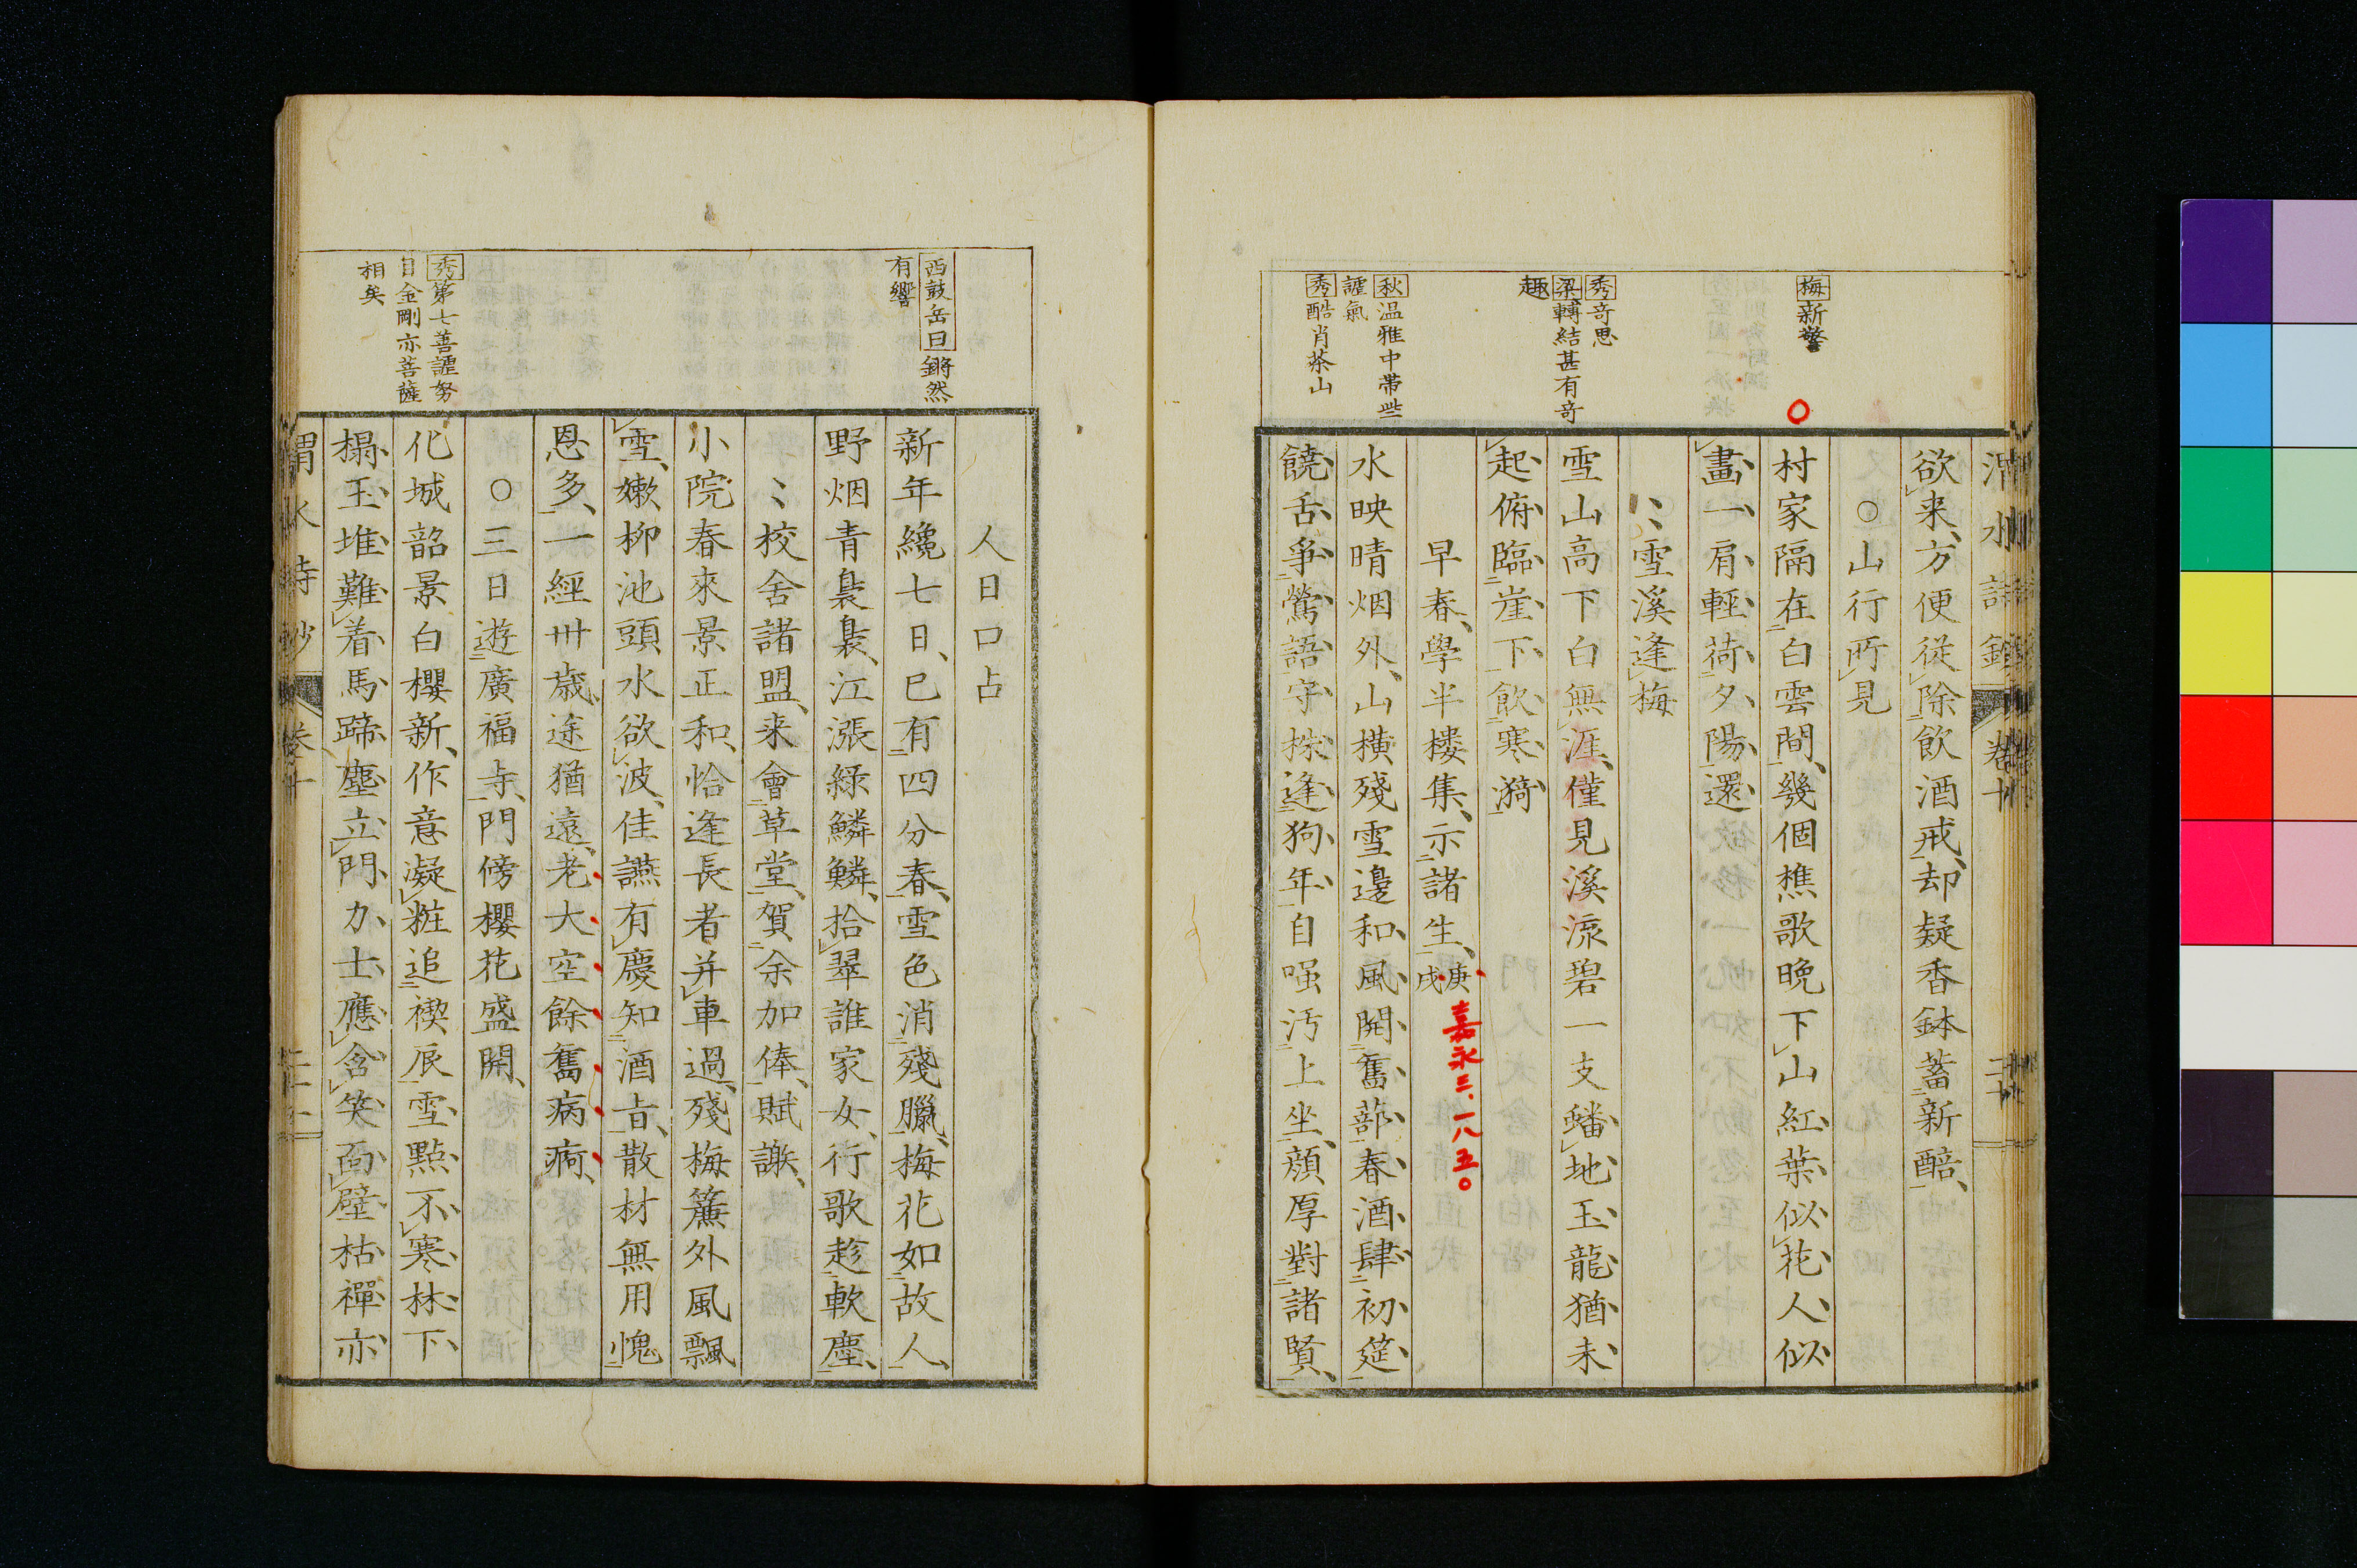 渭水詩鈔 卷十 二十
欲来方便従除飲酒戒却疑香鉢蓄新醅
○山行所見
村家隔在白雲間幾個樵歌晩下山紅葉似花人似
畫一肩輕荷夕陽還
〻雪溪逢梅
雪山高下白無涯僅見溪流碧一支蟠地玉龍猶未
起俯臨崖下飲寒漪
早春學半楼集示諸生庚戌
嘉永三.一八五〇
水映晴烟外山横殘雪邊和風開舊蔀春酒肆初筵
饒舌爭鶯語守株逢狗年自嗤汚上坐顔厚對諸賢
梅新警
秀奇思
梁轉結甚有奇
趣
秋温雅中帯些
謔氣
秀酷肖茶山
人日口占
新年纔七日已有四分春雪色消殘臘梅花如故人
野烟青裊裊江漲緑鱗鱗拾翠誰家女行歌趁軟塵
〻校舍諸盟来會草堂賀余加俸賦謝
小院春來景正和恰逢長者并車過殘梅簾外風飄
雪嫩柳池頭水欲波佳讌有慶知酒旨散材無用愧
恩多一經卅歳途猶遠老大空餘舊病痾
○三日遊廣福寺門傍櫻花盛開
化城韶景白櫻新作意凝粧追禊辰雪點不寒林下
榻玉堆難着馬蹄塵立門力士應含笑面壁枯禪亦
西鼓岳曰鏘然
有響
秀第七善謔努
目金剛亦菩薩
相矣
渭水詩鈔 卷十